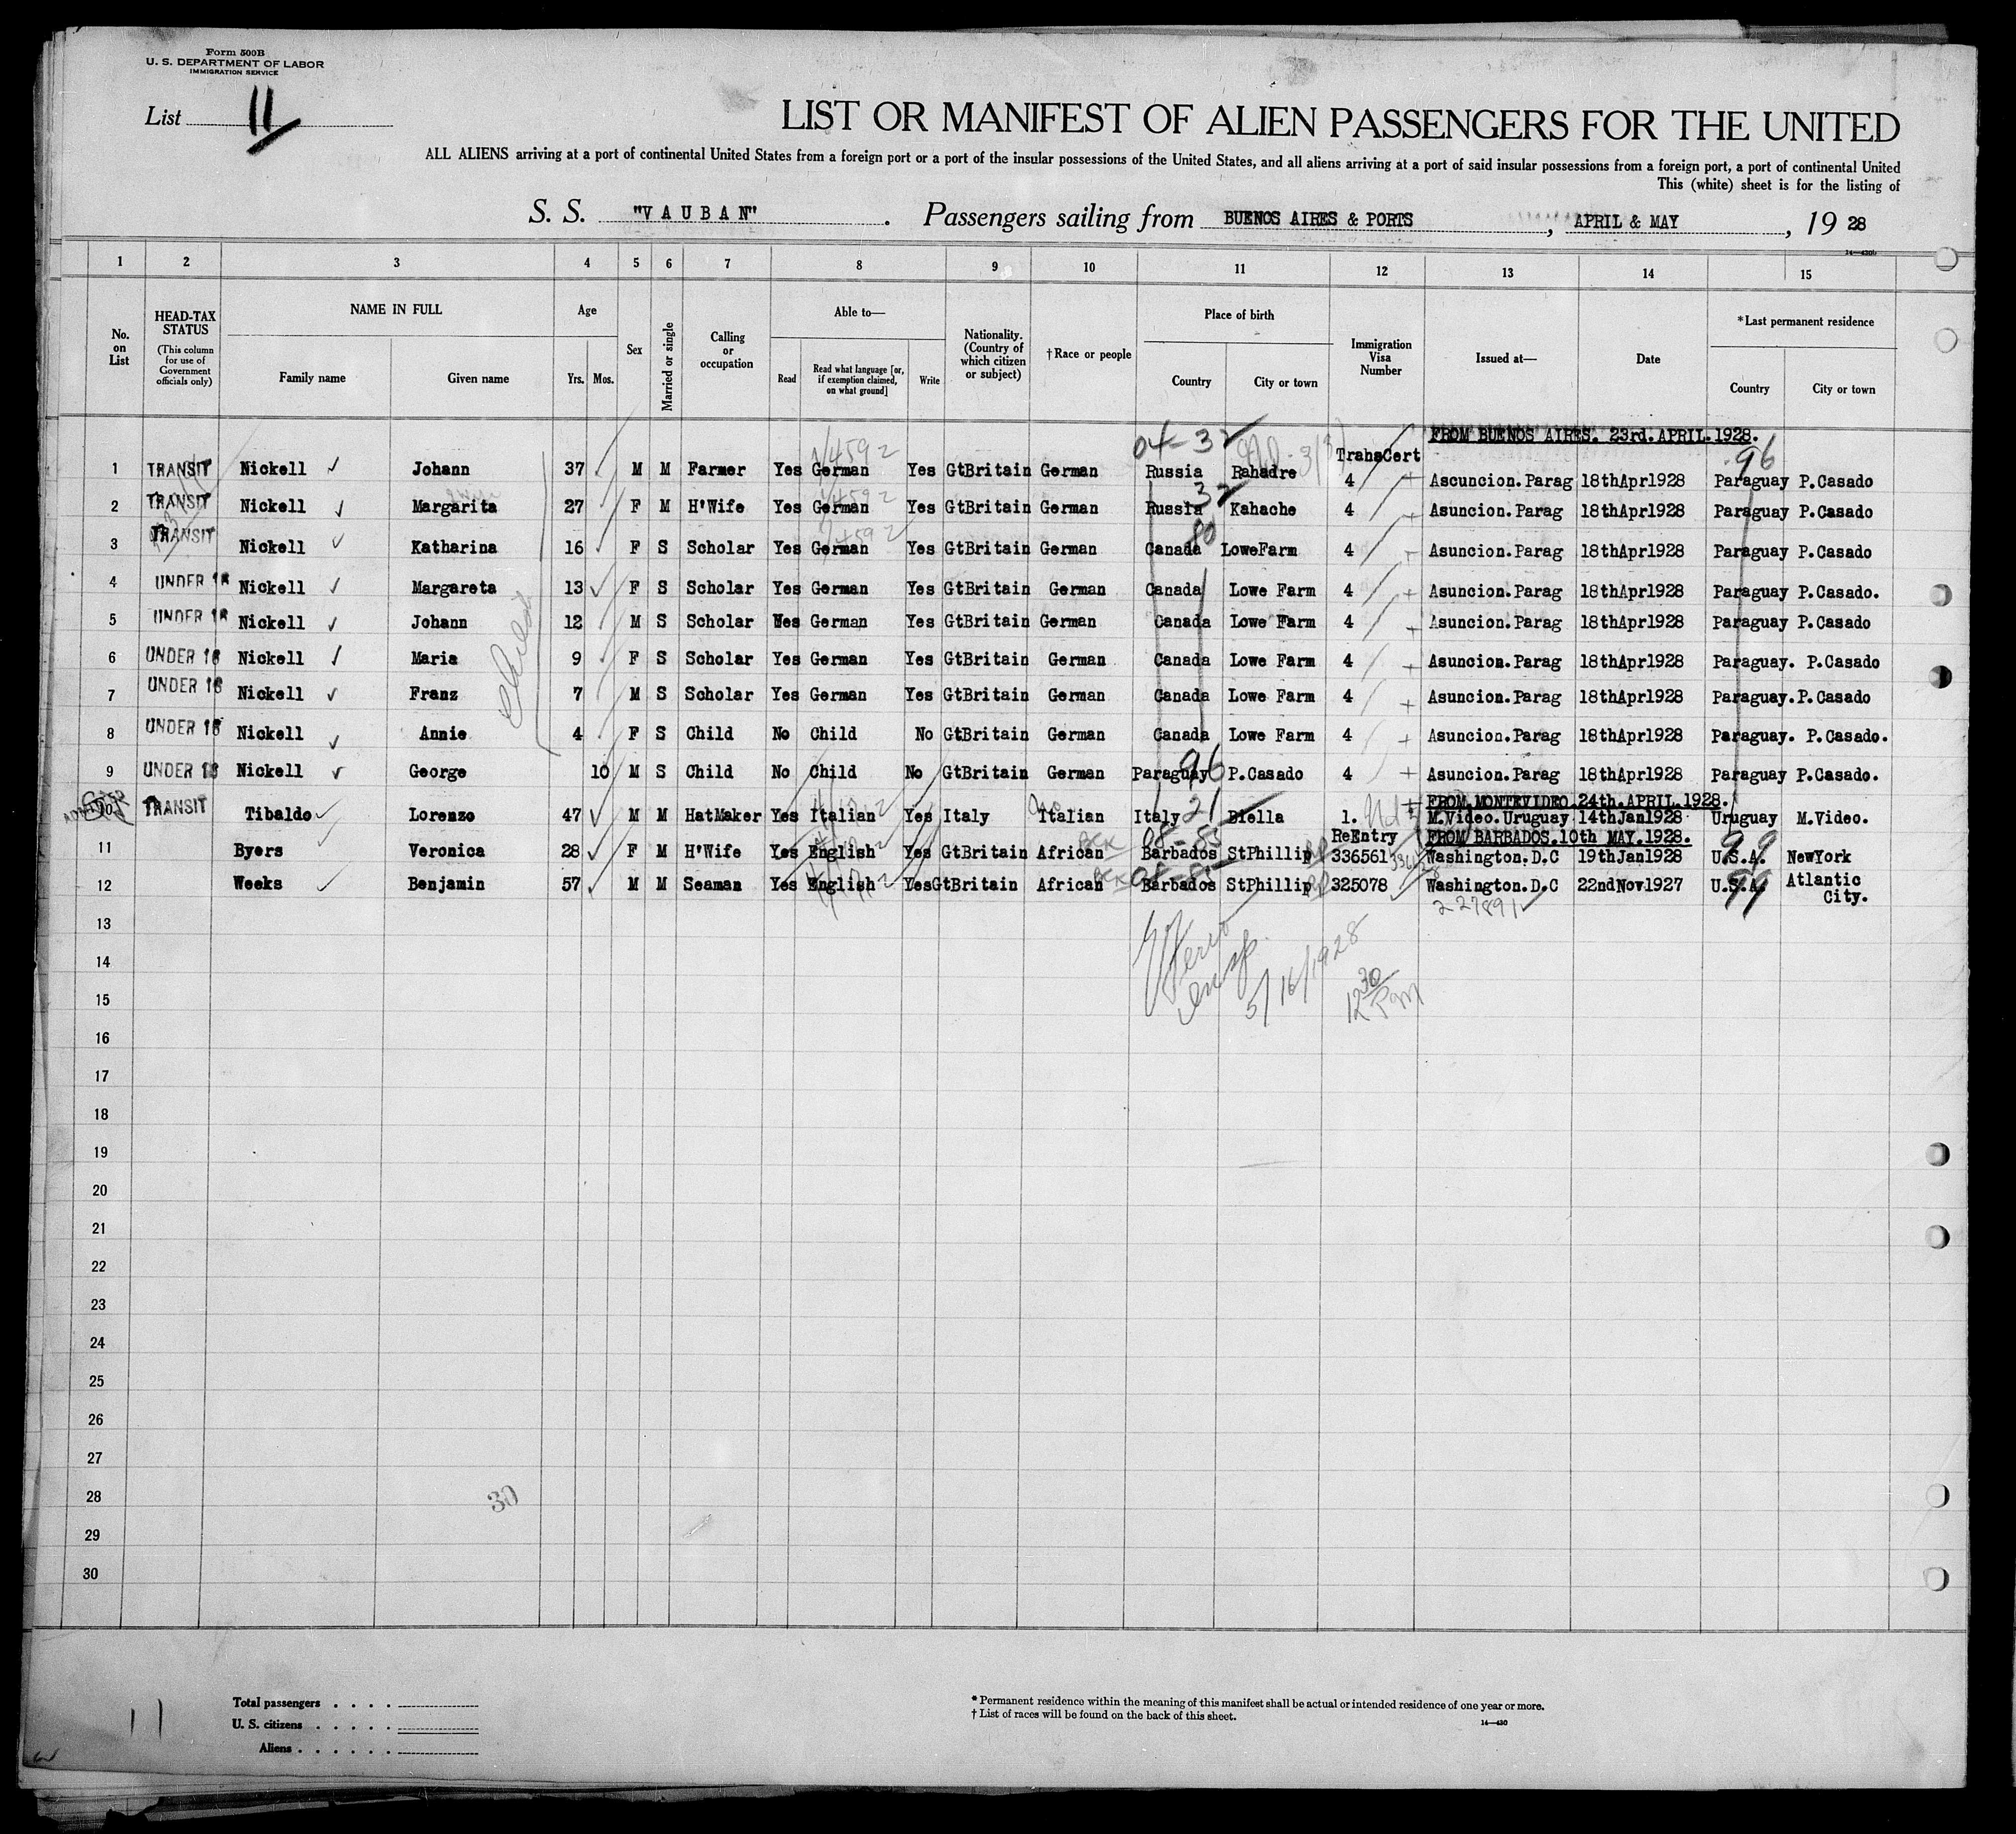 Form 500B
U. S. DEPARTMENT OF LABOR
IMMIGRATION SERVICE
List 11
LIST OR MANIFEST OF ALIEN PASSENGERS FOR THE UNITED
ALL ALIENS arriving at a port of continental United States from a foreign port or a port of the insular possessions of the United States, and all aliens arriving at a port of said insular possessions from a foreign port, a port of continental United
This (white) sheet is for the listing of
S. S. "VAUBAN". Passengers sailing from BUENOS AIRES & PORTS, APRIL & MAY, 19 28
14—430b
1 2 3 4 5 6 7 8 9 10 11 12 13 14 15
No. on List
HEAD-TAX STATUS
(This column for use of Government officials only)
NAME IN FULL
Family name Given name
Age
Yrs. Mos.
Sex
Married or single
Calling or occupation
Able to—
Read
Read what language [or, if exemption claimed, on what ground]
Write
Nationality. (Country of which citizen or subject)
†Race or people
Place of birth
Country City or town
Immigration Visa Number
Issued at—
Date
*Last permanent residence
Country City or town
FROM BUENOS AIRES. 23rd. APRIL. 1928.
04-32 96
TransCert
1 TRANSIT Nickell Johann 37 M M Farmer Yes German Yes GtBritain German Russia Rahadre 4 Ascuncion.Parag 18thApr1928 Paraguay P.Casado
2 TRANSIT Nickell Margarita 27 F M H'Wife Yes German Yes GtBritain German Russia Kahache 4 Asuncion.Parag 18thApr1928 Paraguay P.Casado
3 TRANSIT Nickell Katharina 16 F S Scholar Yes German Yes GtBritain German Canada LoweFarm 4 Asuncion.Parag 18thApr1928 Paraguay P.Casado
4 UNDER 16 Nickell Margareta 13 F S Scholar Yes German Yes GtBritain German Canada Lowe Farm 4 Asuncion.Parag 18thApr1928 Paraguay P.Casado.
5 UNDER 16 Nickell Johann 12 M S Scholar Yes German Yes GtBritain German Canada Lowe Farm 4 Asuncion.Parag 18thApr1928 Paraguay P.Casado
6 UNDER 16 Nickell Maria 9 F S Scholar Yes German Yes GtBritain German Canada Lowe Farm 4 Asuncion.Parag 18thApr1928 Paraguay. P.Casado
7 UNDER 16 Nickell Franz 7 M S Scholar Yes German Yes GtBritain German Canada Lowe Farm 4 Asuncion.Parag 18thApr1928 Paraguay. P.Casado
8 UNDER 16 Nickell Annie 4 F S Child No Child No GtBritain German Canada Lowe Farm 4 Asuncion.Parag 18thApr1928 Paraguay. P.Casado.
9 UNDER 16 Nickell George 10 M S Child No Child No GtBritain German Paraguay P.Casado 4 Asuncion.Parag 18thApr1928 Paraguay P.Casado.
FROM MONTEVIDEO. 24th. APRIL. 1928.
10 TRANSIT Tibaldo Lorenzo 47 M M HatMaker Yes Italian Yes Italy Italian Italy 21 Biella 1. M.Video.Uruguay 14thJan1928 Uruguay M.Video.
ReEntry FROM BARBADOS. 10th MAY. 1928.
11 Byers Veronica 28 F M H'Wife Yes English Yes GtBritain African Barbados StPhillip 336561 Washington.D.C 19thJan1928 U.S.A. NewYork
12 Weeks Benjamin 57 M M Seaman Yes English Yes GtBritain African Barbados StPhillip 325078 Washington.D.C 22ndNov1927 U.S.A. Atlantic City.
227891
13
5/16/1928
14
12 30 Pm
15
16
17
18
19
20
21
22
23
24
25
26
27
28
30
29
30
11
Total passengers
U. S. citizens
Aliens
* Permanent residence within the meaning of this manifest shall be actual or intended residence of one year or more.
† List of races will be found on the back of this sheet.
14—430